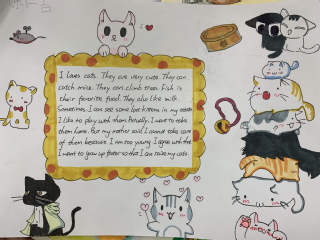 I
I loves cats. They are very cute. They can
catch mice. They can climb trees. Fish is
their favorite food. They also like milk.
Sometimes, I can see some lost kittens in my
I like to play with them. Actually, I want to take
them home. But my mother said I cannot take care
of them because I am too young. I agree with
I want to grow up faster so that I can raise my cats.